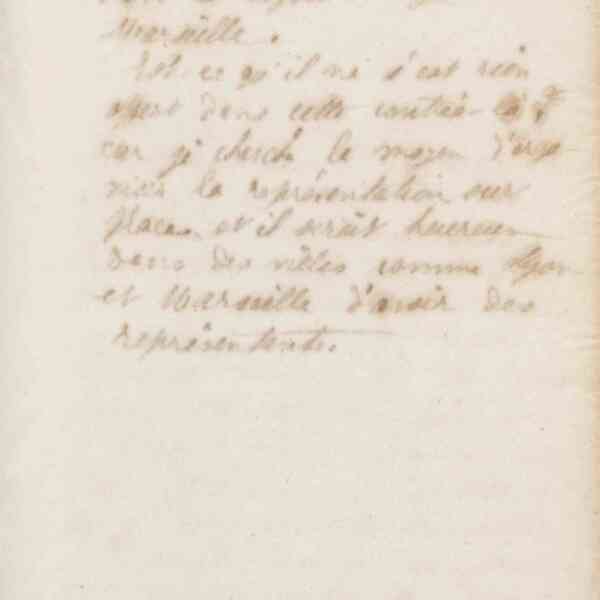 Marseille.
Est ce qu'il ne s'est rien
offert dans cette contrée là ?
car je cherche le moyen d'orga-
niser la représentation sur
place, et il serait heureux
dans des villes comme Lyon
et Marseille d'avoir des
représentants.